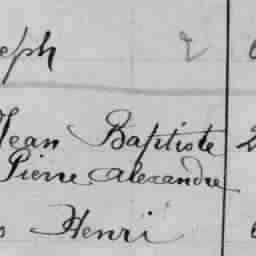 eph 2
Jean Baptiste 2
Pierre Alexandre
s Henri